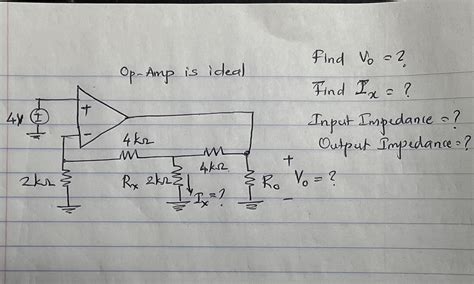 Op-Amp is ideal
Find Vo = ?
Find Ix = ?
Input Impedance = ?
Output Impedance = ?
4V
+
-
4kΩ
4kΩ
2kΩ
Rx 2kΩ
Ix = ?
Ro
+
Vo = ?
-